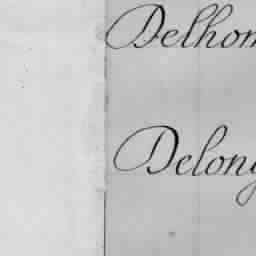 Delhom
Delong